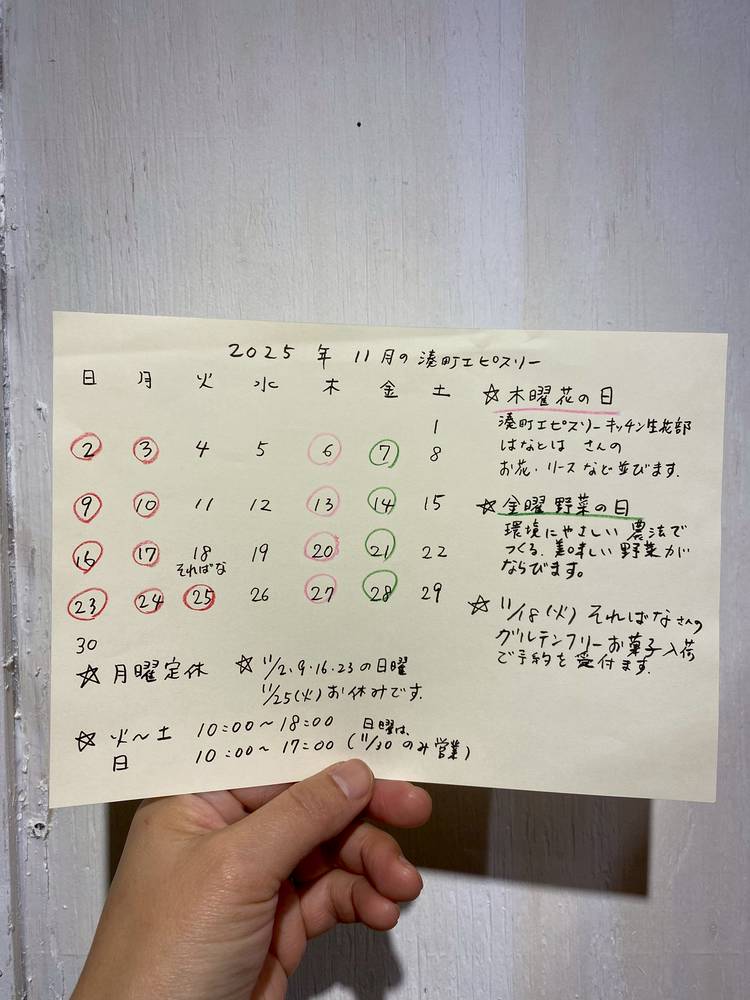 2025年 11月の湊町エピスリー
日 月 火 水 木 金 土
1
2 3 4 5 6 7 8
9 10 11 12 13 14 15
16 17 18 19 20 21 22
そればな
23 24 25 26 27 28 29
30
☆ 月曜定休
☆ 11/2、9・16・23の日曜
11/25(火)お休みです.
☆ 火〜土 10:00〜18:00
日 10:00〜17:00
日曜は、
(11/30のみ営業)
☆ 木曜花の日
湊町エピスリーキッチン生花部
はなとは さんの
お花・リースなど並びます.
☆ 金曜野菜の日
環境にやさしい農法で
つくる、美味しい野菜が
ならびます。
☆ 11/18(火)そればなさんの
グルテンフリーお菓子入荷
で予約を受付ます.